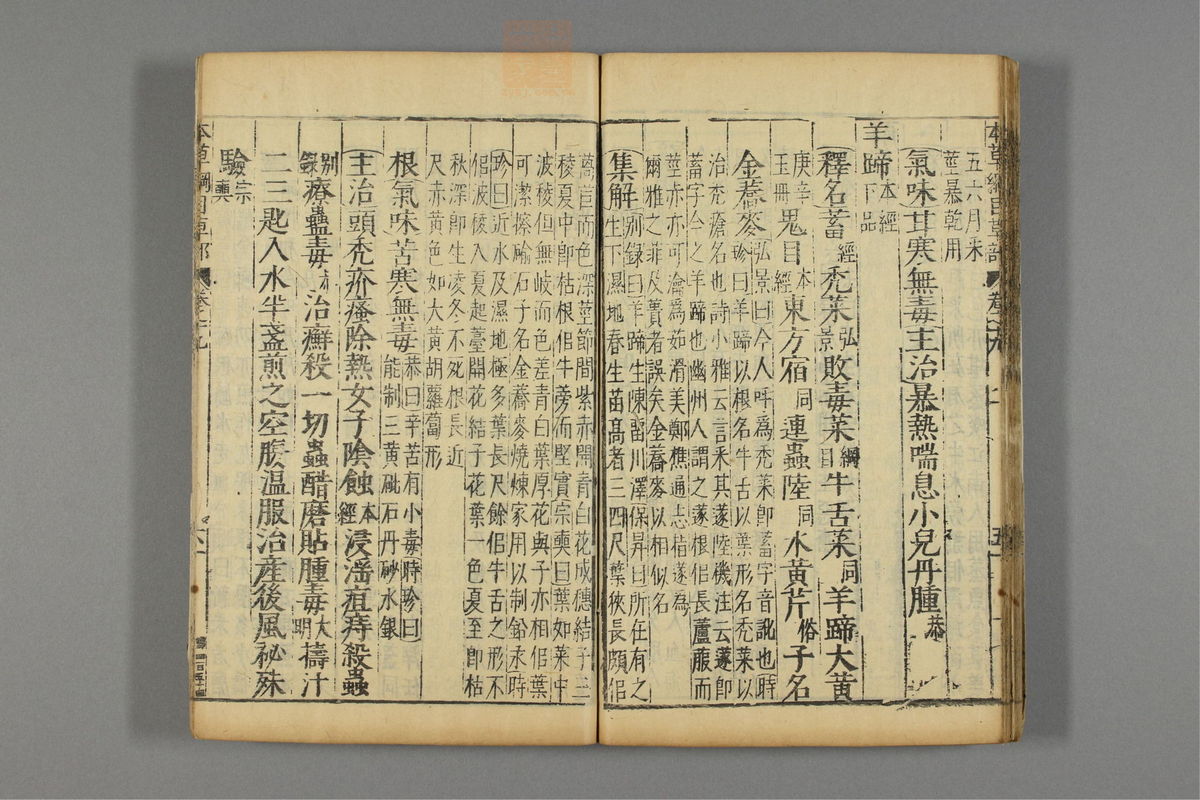 五六月采
莖暴乾用
氣味甘寒無毒主治暴熱喘息小兒丹腫恭
羊蹄本經下品
釋名蓄經禿菜弘景敗毒菜綱目牛舌菜同羊蹄大黃
庚辛玉冊鬼目本經東方宿同連蟲陸同水黃芹俗子名
金蕎麥弘景曰今人呼爲禿菜卽蓄字音訛也時
珍曰羊蹄以根名牛舌以葉形名禿菜以
治禿瘡名也詩小雅云言采其蓫陸機注云蓫卽
蓄字今之羊蹄也幽州人謂之蓫根似長蘆菔而
莖赤亦可瀹爲茹滑美鄭樵通志指蓫爲
爾雅之菲及蕢者誤矣金蕎麥以相似名
集解別錄曰羊蹄生陳留川澤保昇曰所在有之
生下濕地春生苗高者三四尺葉狹長頗似
萵苣而色深莖節間紫赤開青白花成穗結子三
稜夏中卽枯根似牛旁而堅實宗奭曰葉如菜中
波稜但無岐而色差青白葉厚花與子亦相似葉
可潔擦鍮石子名金蕎麥燒煉家用以制鉛汞時
珍曰近水及濕地極多葉長尺餘似牛舌之形不
似波稜入夏起薹開花結子花葉一色夏至卽枯
秋深卽生凌冬不死根長近
尺赤黃色如大黃胡蘿蔔形
根氣味苦寒無毒恭曰辛苦有小毒時珍曰
能制三黃砒石丹砂水銀
主治頭禿疥瘙除熱女子陰蝕本經浸淫疽痔殺蟲
別錄療蠱毒恭治癬殺一切蟲醋磨貼腫毒大明擣汁
二三匙入水半盞煎之空腹溫服治産後風祕殊
驗宗奭